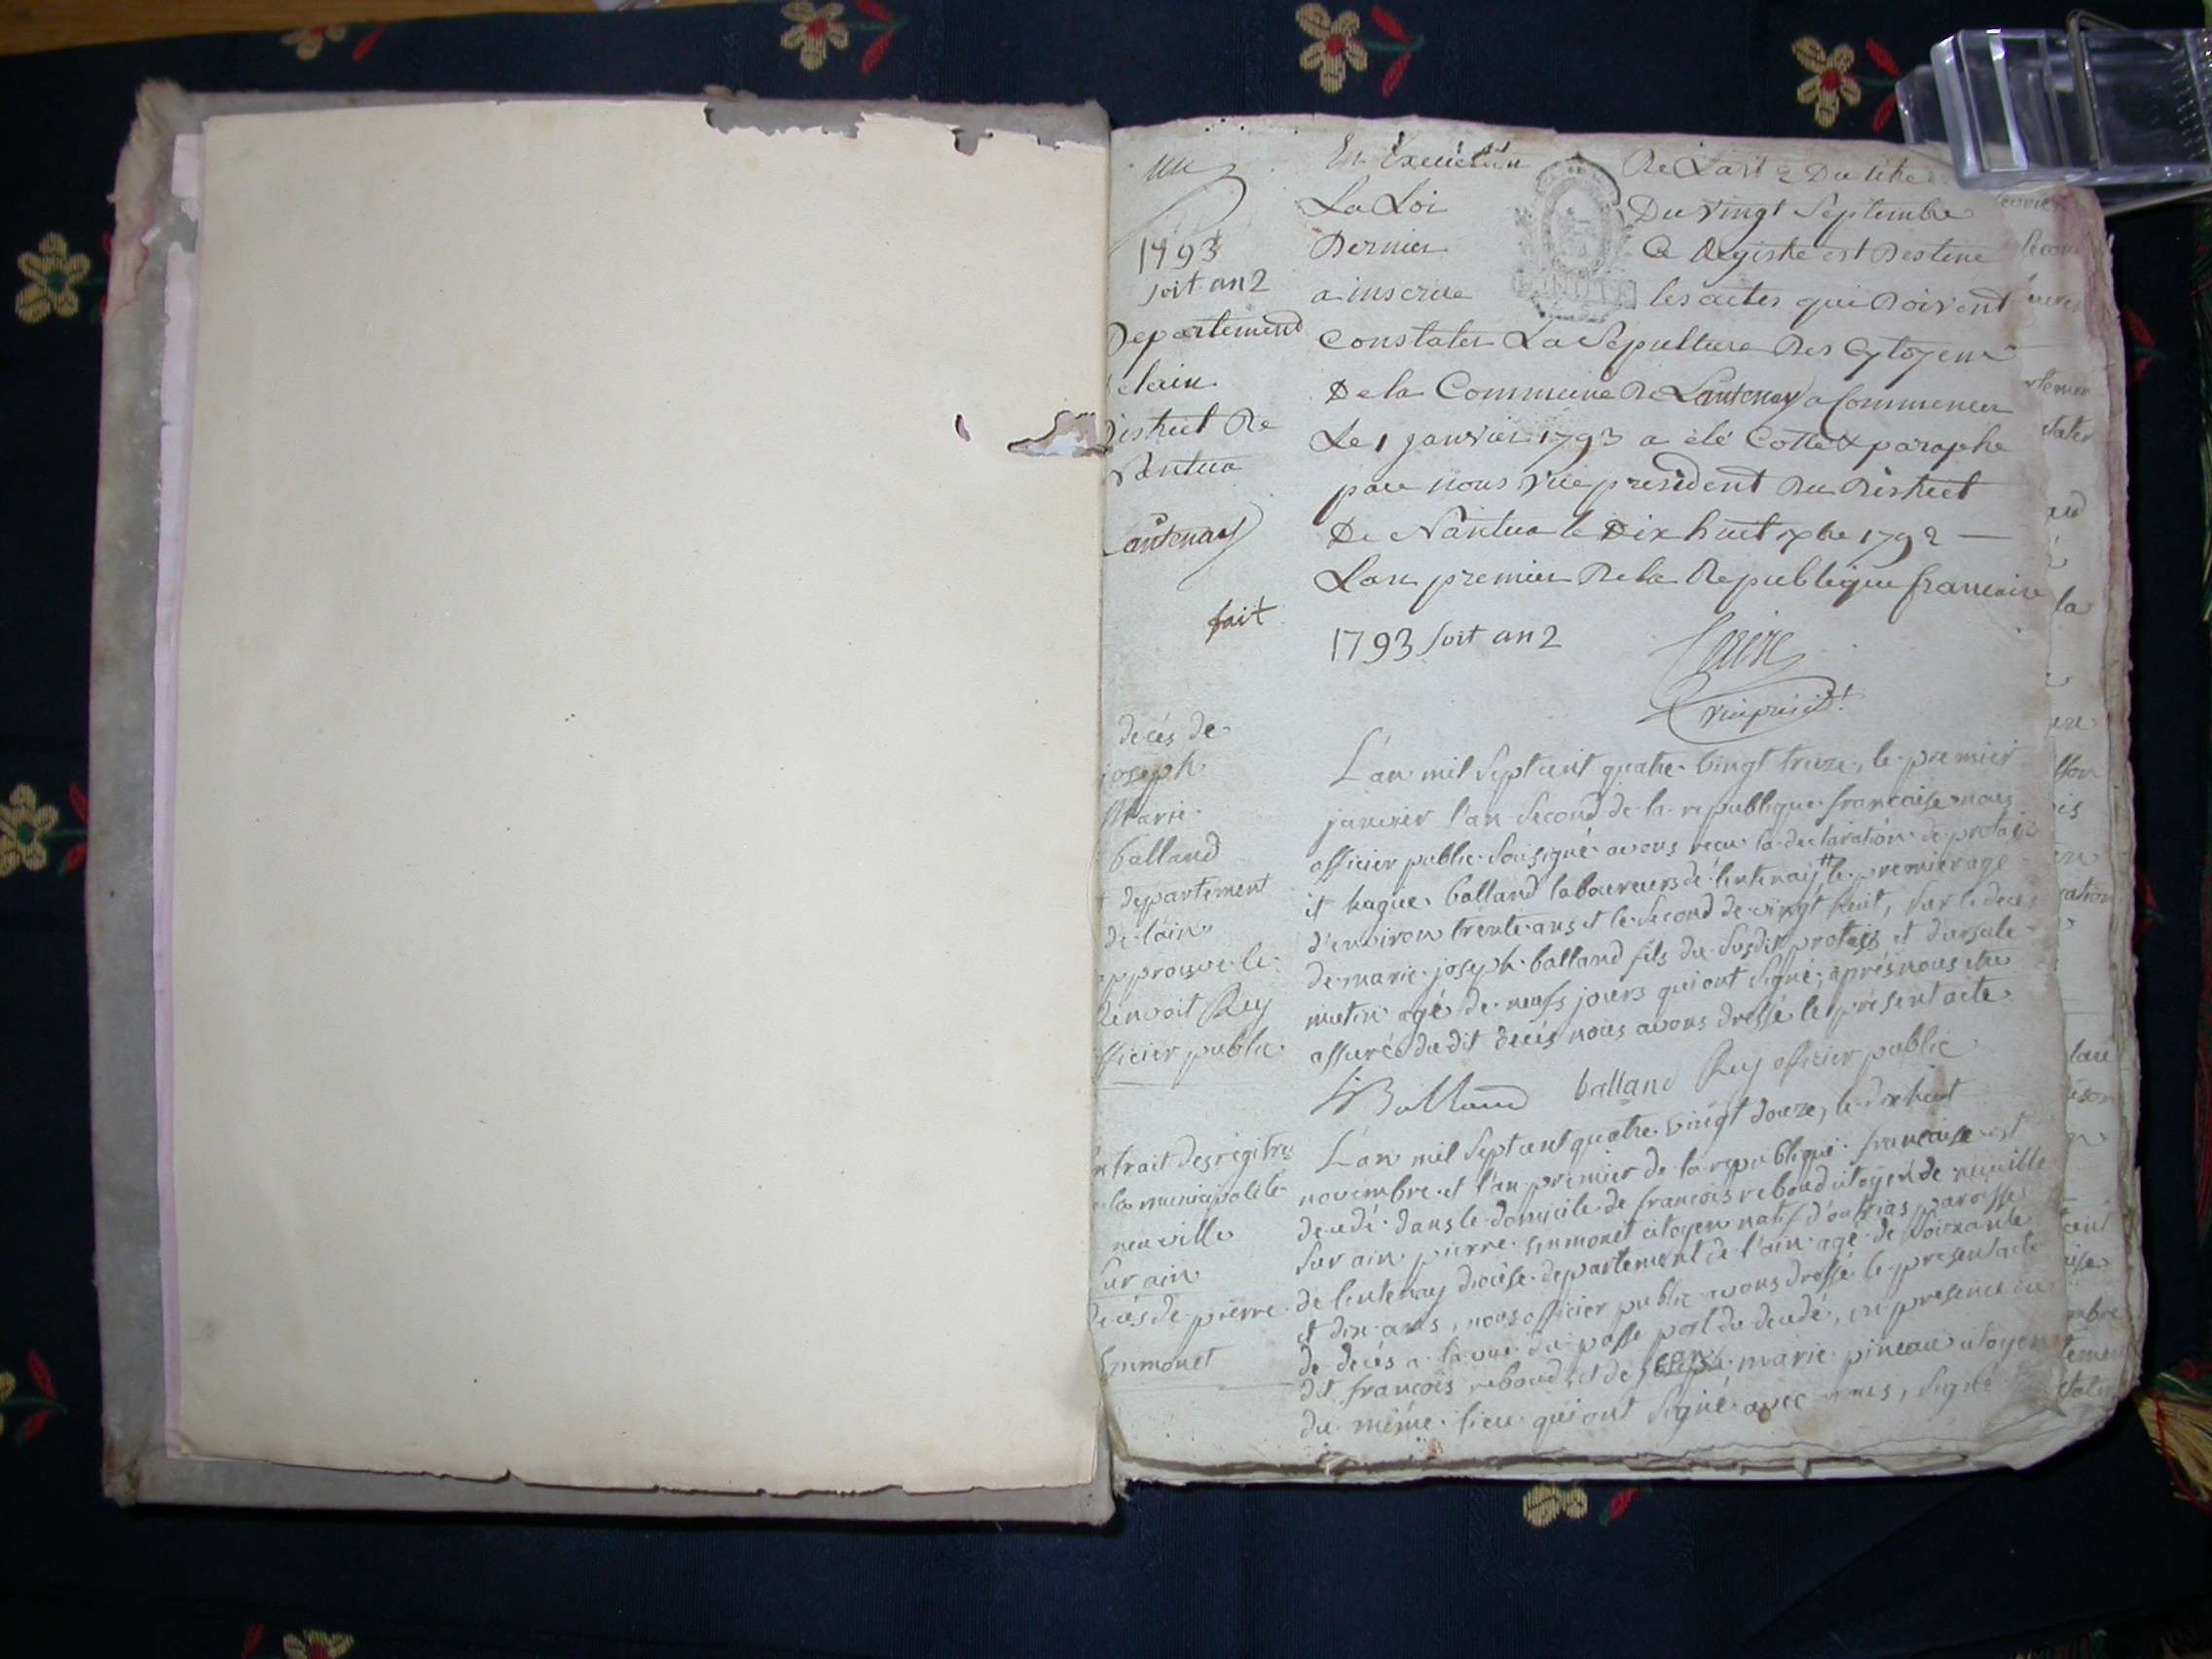 un
1793
soit an 2
Departement
elain
District De
Nantua
Lantenay
fait
En Execution De L'art 2 Du titre
La Loi Du vingt Septembre
Dernier Ce Registre est Destine
a inscrire les actes qui Doivent
Constater La Sepulture Des Cytoyens
De la Commune De Lantenay a Commencer
Le 1 janvier 1793 a été Cotté & paraphe
par nous vice president Du District
De Nantua le Dix huit xbre 1792 —
Lan premier De la Republique francaise
1793 soit an 2
décés de
joseph
Marie
balland
departement
de l'ain
approuve le
Benoit Rey
officier public
L'an mil Sept cent quatre vingt treize, le premier
janvier l'an Second de la republique francaise nous
officier public Sousigné avons reçu la déclaration de protais
et hugue balland laboureurs de lentenay le premier agé
d'environ trente ans et le Second de vingt huit, Sur le deces
de marie joseph balland fils du Susdit protais et d'ursule
mutin agé de neufs jours qui ont Signé, aprés nous etre
assuré du dit décés nous avons dressé le présent acte
Balland balland Rey officier public
extrait des regitres
la municipalité
neuville
Sur ain
décés de pierre
Emmonet
L'an mil Sept cent quatre vingt douze, le dix huit
novembre et l'an premier de la republique francaise est
decedé dans le domicile de francois reboud citoyen de neuville
Sur ain pierre Emmonet citoyen natif d'outrias paroisse
de lentenay diocése departement de l'ain agé de Soixante
et dix ans, nous officier public avons dressé le present acte
de décés a la vue du passe port du decedé, en presence du
dit francois reboud et de marie pineau citoyen
du même lieu qui ont Signé avec nous, Signé